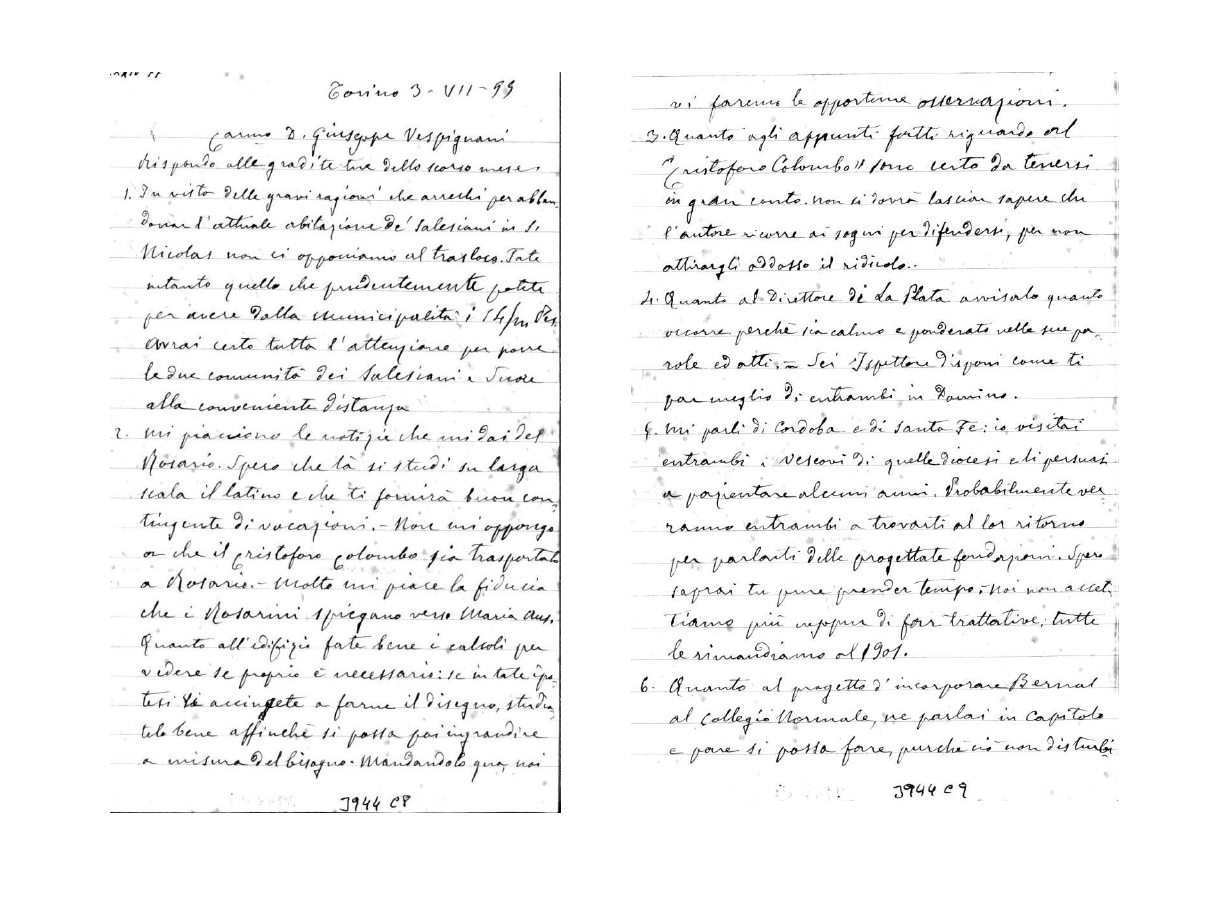 Torino 3-VII-99
Carmo D. Giuseppe Vespignani
Rispondo alle gradite tue dello scorso mese.
1. In vista delle gravi ragioni che arrechi per abban-
donar l'attuale abitazione de' Salesiani in S.
Nicolas non ci opponiamo al trasloco. Fate
intanto quello che prudentemente potete
per avere dalla Municipalità i 14/m Pes.
Avrai certo tutta l'attenzione per porre
le due comunità dei Salesiani e Suore
alla conveniente distanza
2. Mi piacciono le notizie che mi dai del
Rosario. Spero che là si studi su larga
scala il latino e che ti fornirà buon con-
tingente di vocazioni. - Non mi oppongo
a che il Cristoforo Colombo sia trasportato
a Rosario. - Molto mi piace la fiducia
che i Rosarini spiegano verso Maria Aus.
Quanto all'edifizio fate bene i calcoli per
vedere se proprio è necessario: se in tale ipo-
tesi vi accingete a farne il disegno, studia-
telo bene affinchè si possa poi ingrandire
a misura del bisogno. Mandandolo qua, noi
J944 C8
vi faremo le opportune osservazioni.
3. Quanto agli appunti fatti riguardo al
"Cristoforo Colombo" sono certo da tenersi
in gran conto. Non si dovrà lasciar sapere che
l'autore ricorre ai sogni per difendersi, per non
attirargli addosso il ridicolo..
4. Quanto al Direttore de La Plata avvisalo quanto
occorre perchè sia calmo e ponderato nelle sue pa-
role ed atti. - Sei Ispettore disponi come ti
par meglio di entrambi in Domino.
5. Mi parli di Cordoba e di Santa Fè: io visitai
entrambi i Vescovi di quelle diocesi e li persuasi
a pazientare alcuni anni. Probabilmente ver-
ranno entrambi a trovarti al lor ritorno
per parlarti delle progettate fondazioni. Spero
saprai tu pure prender tempo. - Noi non accet-
tiamo più neppur di far trattative; tutte
le rimandiamo al 1901.
6. Quanto al progetto d'incorporare Bernal
al Collegio Normale, ne parlai in Capitolo
e pare si possa fare, purchè ciò non disturbi
J944 C9